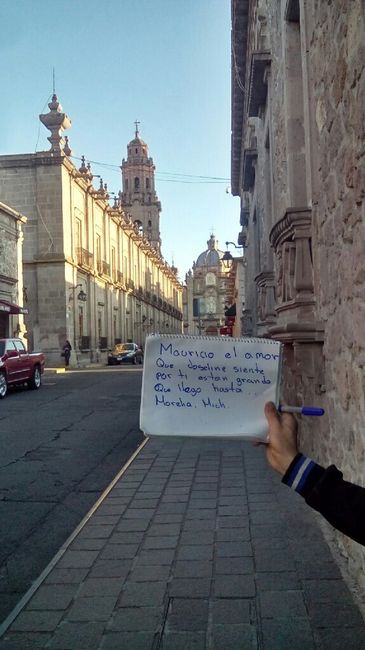 Mauricio el amor
Que Joseline siente
por ti es tan grande
Que llego hasta
Morelia, Mich.